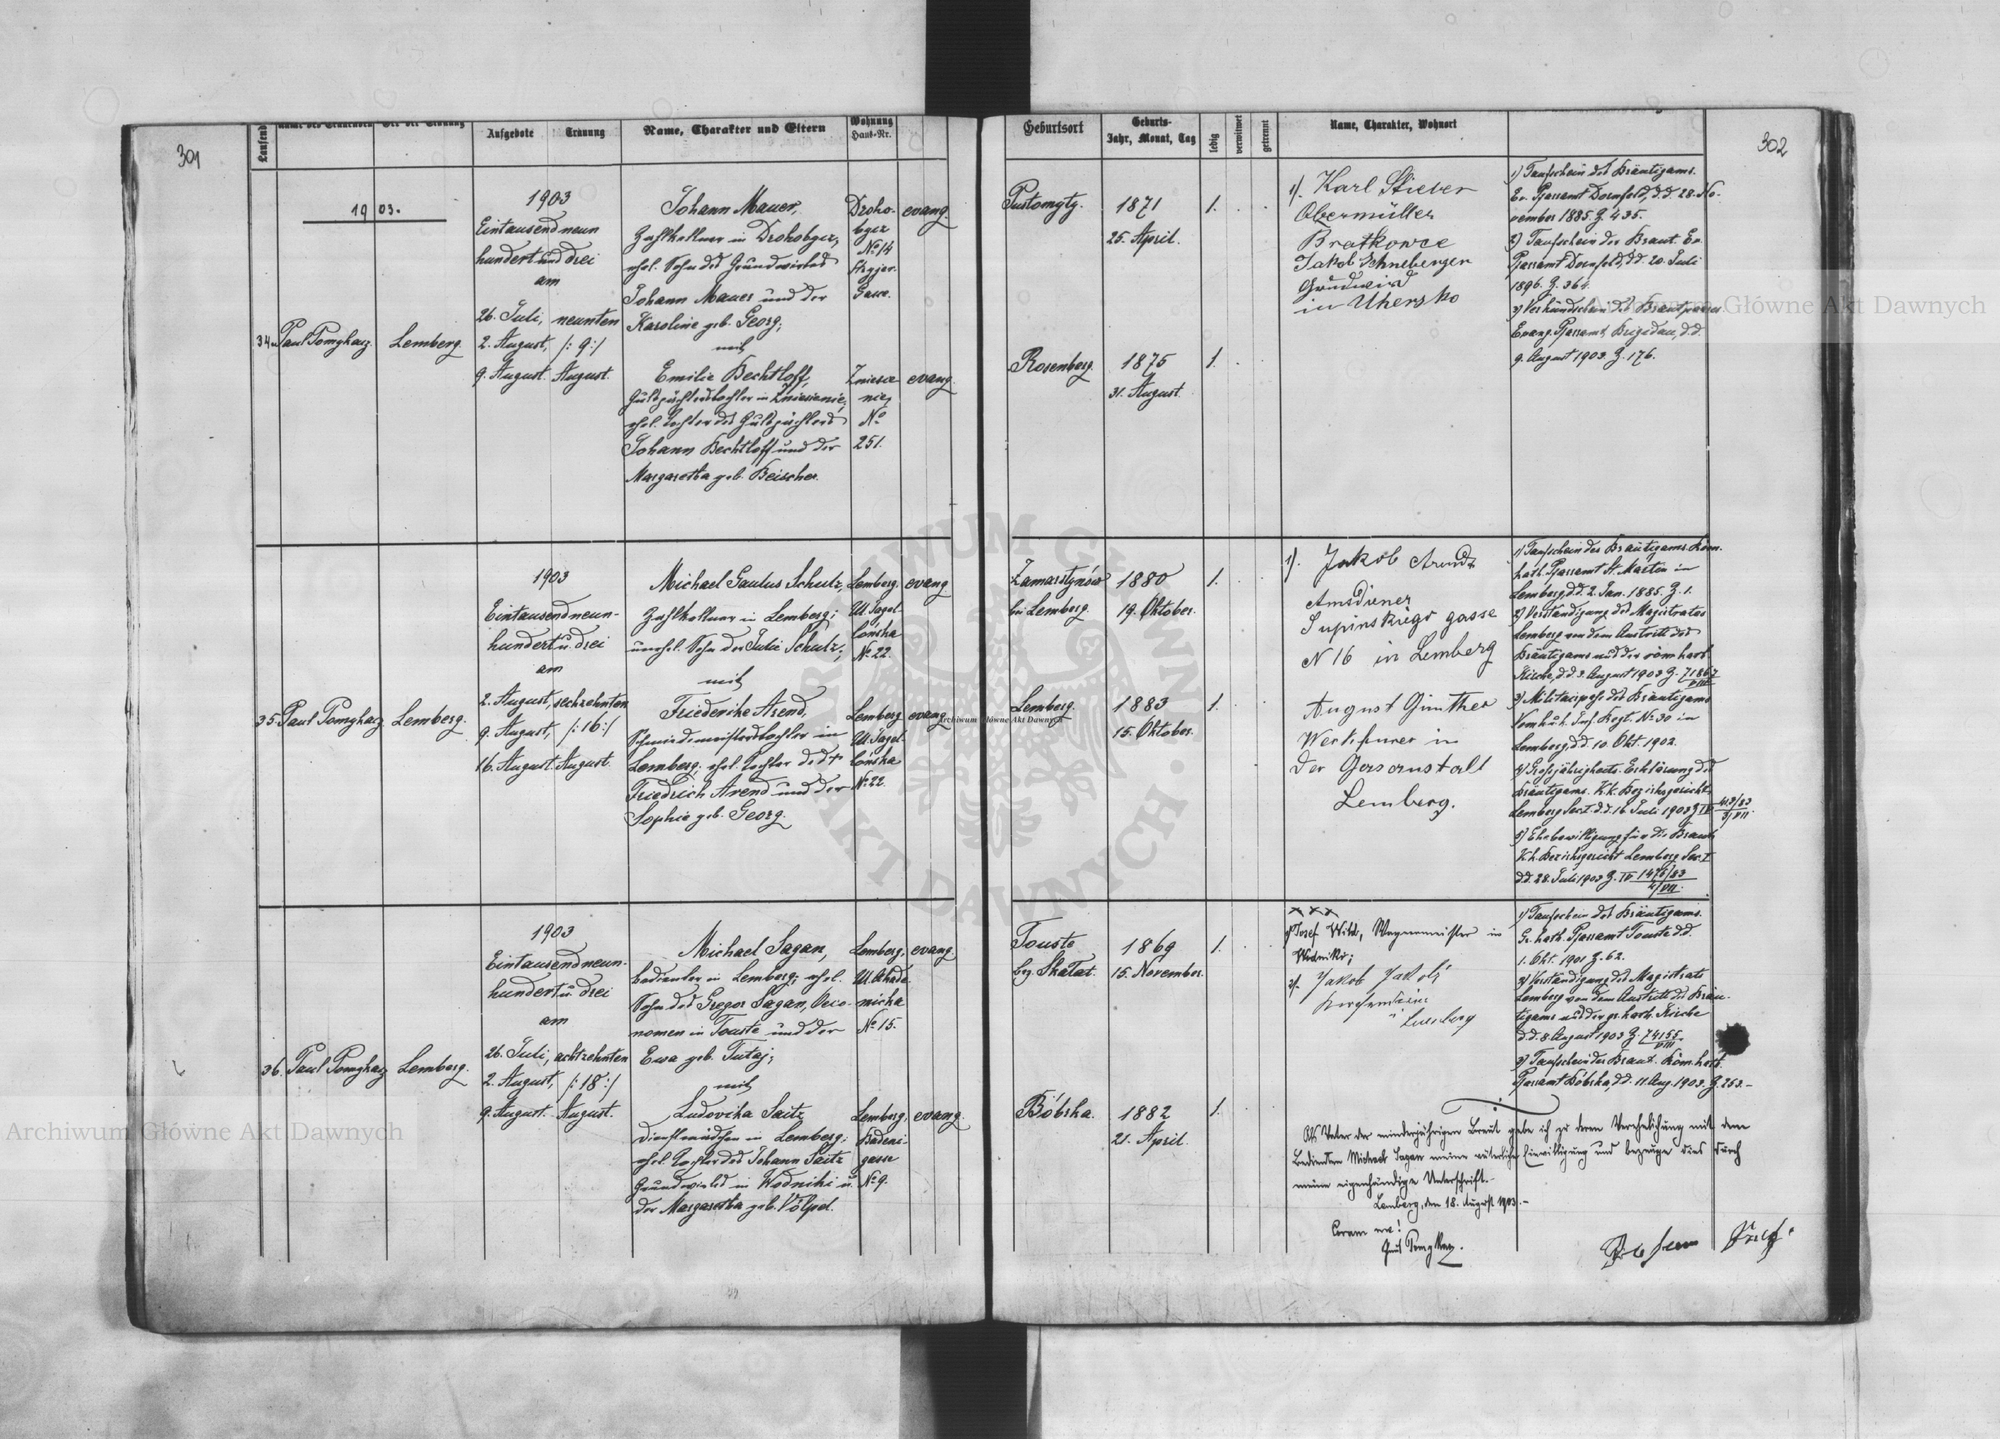 301
Laufende
Name des Trauenden
Ort der Trauung
Aufgebote
Trauung
Name, Charakter und Eltern
Wohnung
Haus-Nr.
1903.
34.
Paul Pomykacz
Lemberg
1903
Eintausend neun
hundert und drei
am
26. Juli, neunten
2. August, /: 9 :/
9. August. August.
Johann Mauer,
Zahlkellner in Drohobycz,
ehel. Sohn des Grundwirtes
Johann Mauer und der
Karoline geb. Georg;
mit
Emilie Bechtloff,
Gutspächterstochter in Zniesienie,
ehel. Tochter des Gutspächters
Johann Bechtloff und der
Margaretha geb. Beischer.
Droho-
bycz
No 14
Stryjer-
Gasse.
evang.
Zniesie
nie,
No
251.
evang.
35.
Paul Pomykacz
Lemberg.
1903
Eintausend neun-
hundert u. drei
am
2. August, sechzehnten
9. August, /: 16 :/
16. August. August.
Michael Paulus Schulz,
Zahlkellner in Lemberg;
unehel. Sohn der Julie Schulz;
mit
Friederike Arend,
Schmiedemeisterstochter in
Lemberg, ehel. Tochter des †
Friedrich Arend und der
Sophie geb. Georg.
Lemberg,
Ul. Jagel-
lonska
No 22.
evang
Lemberg
Ul. Jagel-
lonska
No. 22.
evang
36.
Paul Pomykacz
Lemberg.
1903
Eintausend neun-
hundert u. drei
am
26. Juli, achtzehnten
2. August, /: 18 :/
9. August. August.
Michael Sagan,
Bedienter in Lemberg; ehel.
Sohn des Gregor Sagan, Oeco-
nomen in Touste und der
Ewa geb. Tutaj;
mit
Ludovika Saitz
Dienstmädchen in Lemberg;
ehel. Tochter des Johann Saitz
Grundwirtes in Wodniki u.
der Margaretha geb. Völpel.
Lemberg,
Ul. Akade-
micka
No 15.
evang
Lemberg,
Badeni-
gasse
No 9.
evang.
302
Geburtsort
Geburts-
Jahr, Monat, Tag
ledig
verwitwet
getrennt
Name, Charakter, Wohnort
Pustomyty.
1871
25. April.
1.
Rosenberg.
1875
31. August
1.
1). Karl Stieber
Obermüller
Bratkowce
Jakob Schneberger
in Uhersko
1) Taufschein des Bräutigams.
Ev. Pfarramt Dornfeld, d.d. 28. No-
vember 1885. Z. 435.
2) Taufschein der Braut. Ev.
Pfarramt Dornfeld, d.d. 20. Juli
1896. Z. 364.
3) Verkündschein des Brautpaares.
Evang. Pfarramt, Brigidau, d.d.
9. August 1903. Z. 176.
Zamarstynów
bei Lemberg.
1880
19. Oktober.
1.
Lemberg.
1883
15. Oktober.
1.
1). Jakob Arend
Amsdiener
Supinskiego gasse
N 16 in Lemberg
August Günther
Werkfürer in
der Gasanstalt
Lemberg.
1) Taufschein des Bräutigams. Röm.
kath. Pfarramt St. Martin in
Lemberg, d.d. 2. Jan. 1885. Z. 1.
2) Verständigung des Magistrates
Lemberg von dem Austritt des
Bräutigams aus der röm. kath.
Kirche, d.d. 3. August 1903 Z. 71867/VIII
3) Militärpass des Bräutigams
Vom k.u.k. Inf. Regt. Nr. 30 in
Lemberg, d.d. 10. Okt. 1902.
4) Grossjährigkeits-Erklärung des
Bräutigams. K.k. Bezirksgericht
Lemberg Sect. I. d.d. 16. Juli 1903
5) Ehebewilligung für die Braut
K.k. Bezirksgericht Lemberg Sec. I
d.d. 28. Juli 1903
Touste
bez. Skałat.
1869
15. November.
1.
Bóbrka.
1882
21. April.
1.
1) Josef Wild, Wagnermeister in
Wodniki;
2). Jakob Jakobi
Kirchendiener
in Lemberg
1) Taufschein des Bräutigams.
Gr. kath. Pfarramt Touste d.d.
1. Okt. 1901 Z. 62.
2) Verständigung des Magistrats
Lemberg von dem Austritt des Bräu-
tigams aus der gr. kath. Kirche
d.d. 8. August 1903 Z. 74155/VIII
3) Taufschein der Braut. Röm. kath.
Pfarramt Bóbrka, d.d. 11. Aug. 1903. Z. 253.
Als Vater der minderjährigen Braut gebe ich zu deren Verehelichung mit dem
Bedienten Michael Sagan meine väterliche Einwilligung und bezeuge dies durch
meine eigenhändige Unterschrift.
Lemberg, den 18. August 1903.
Coram me!
Paul Pomykacz.
Archiwum Główne Akt Dawnych
Archiwum Główne Akt Dawnych
Archiwum Główne Akt Dawnych
ARCHIWUM GŁÓWNE AKT DAWNYCH